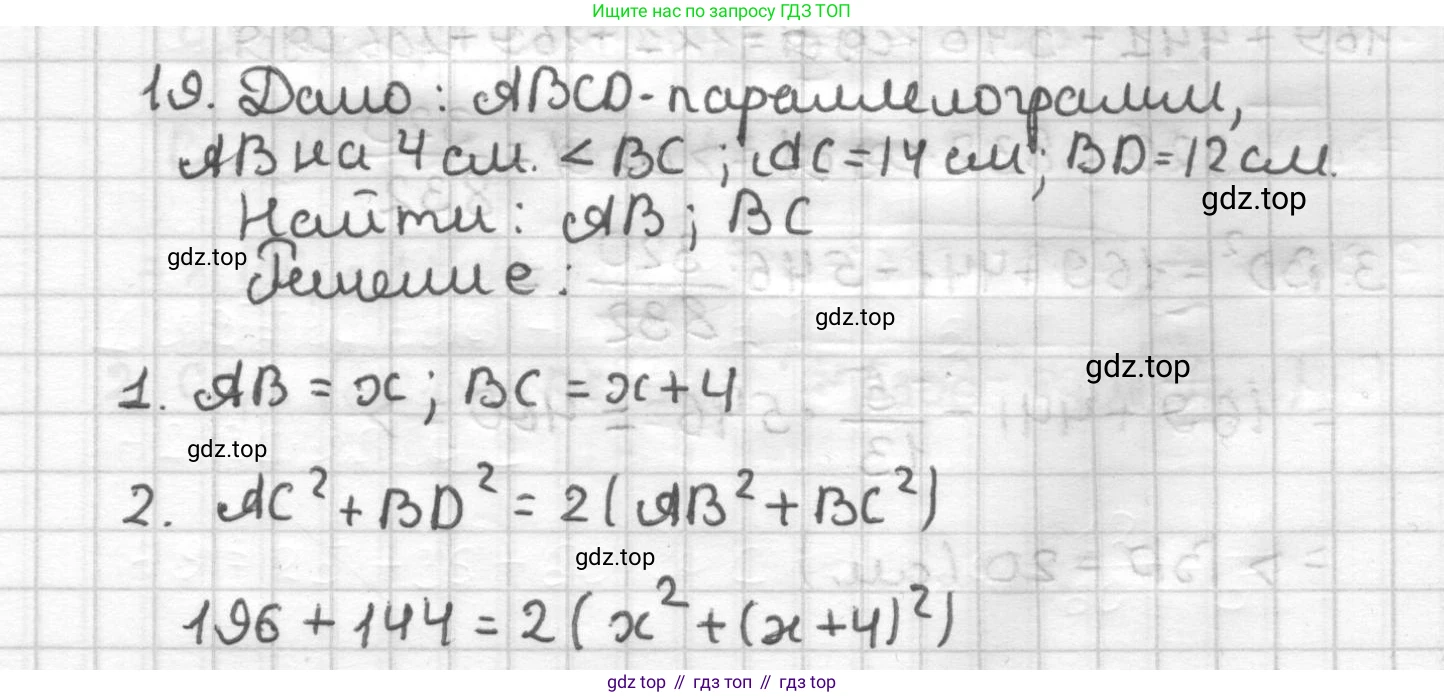 Ищите нас по запросу ГДЗ ТОП
19. Дано: ABCD-параллелограмм,
AB на 4 см. < BC ; AC = 14 см ; BD = 12 см.
gdz.top
Найти: AB ; BC
gdz.top
Решение:
gdz.top
gdz.top
1. AB = x ; BC = x + 4
gdz.top
2. AC² + BD² = 2 ( AB² + BC² )
gdz.top
196 + 144 = 2 ( x² + (x + 4)² )
gdz top // гдз топ // гдз top